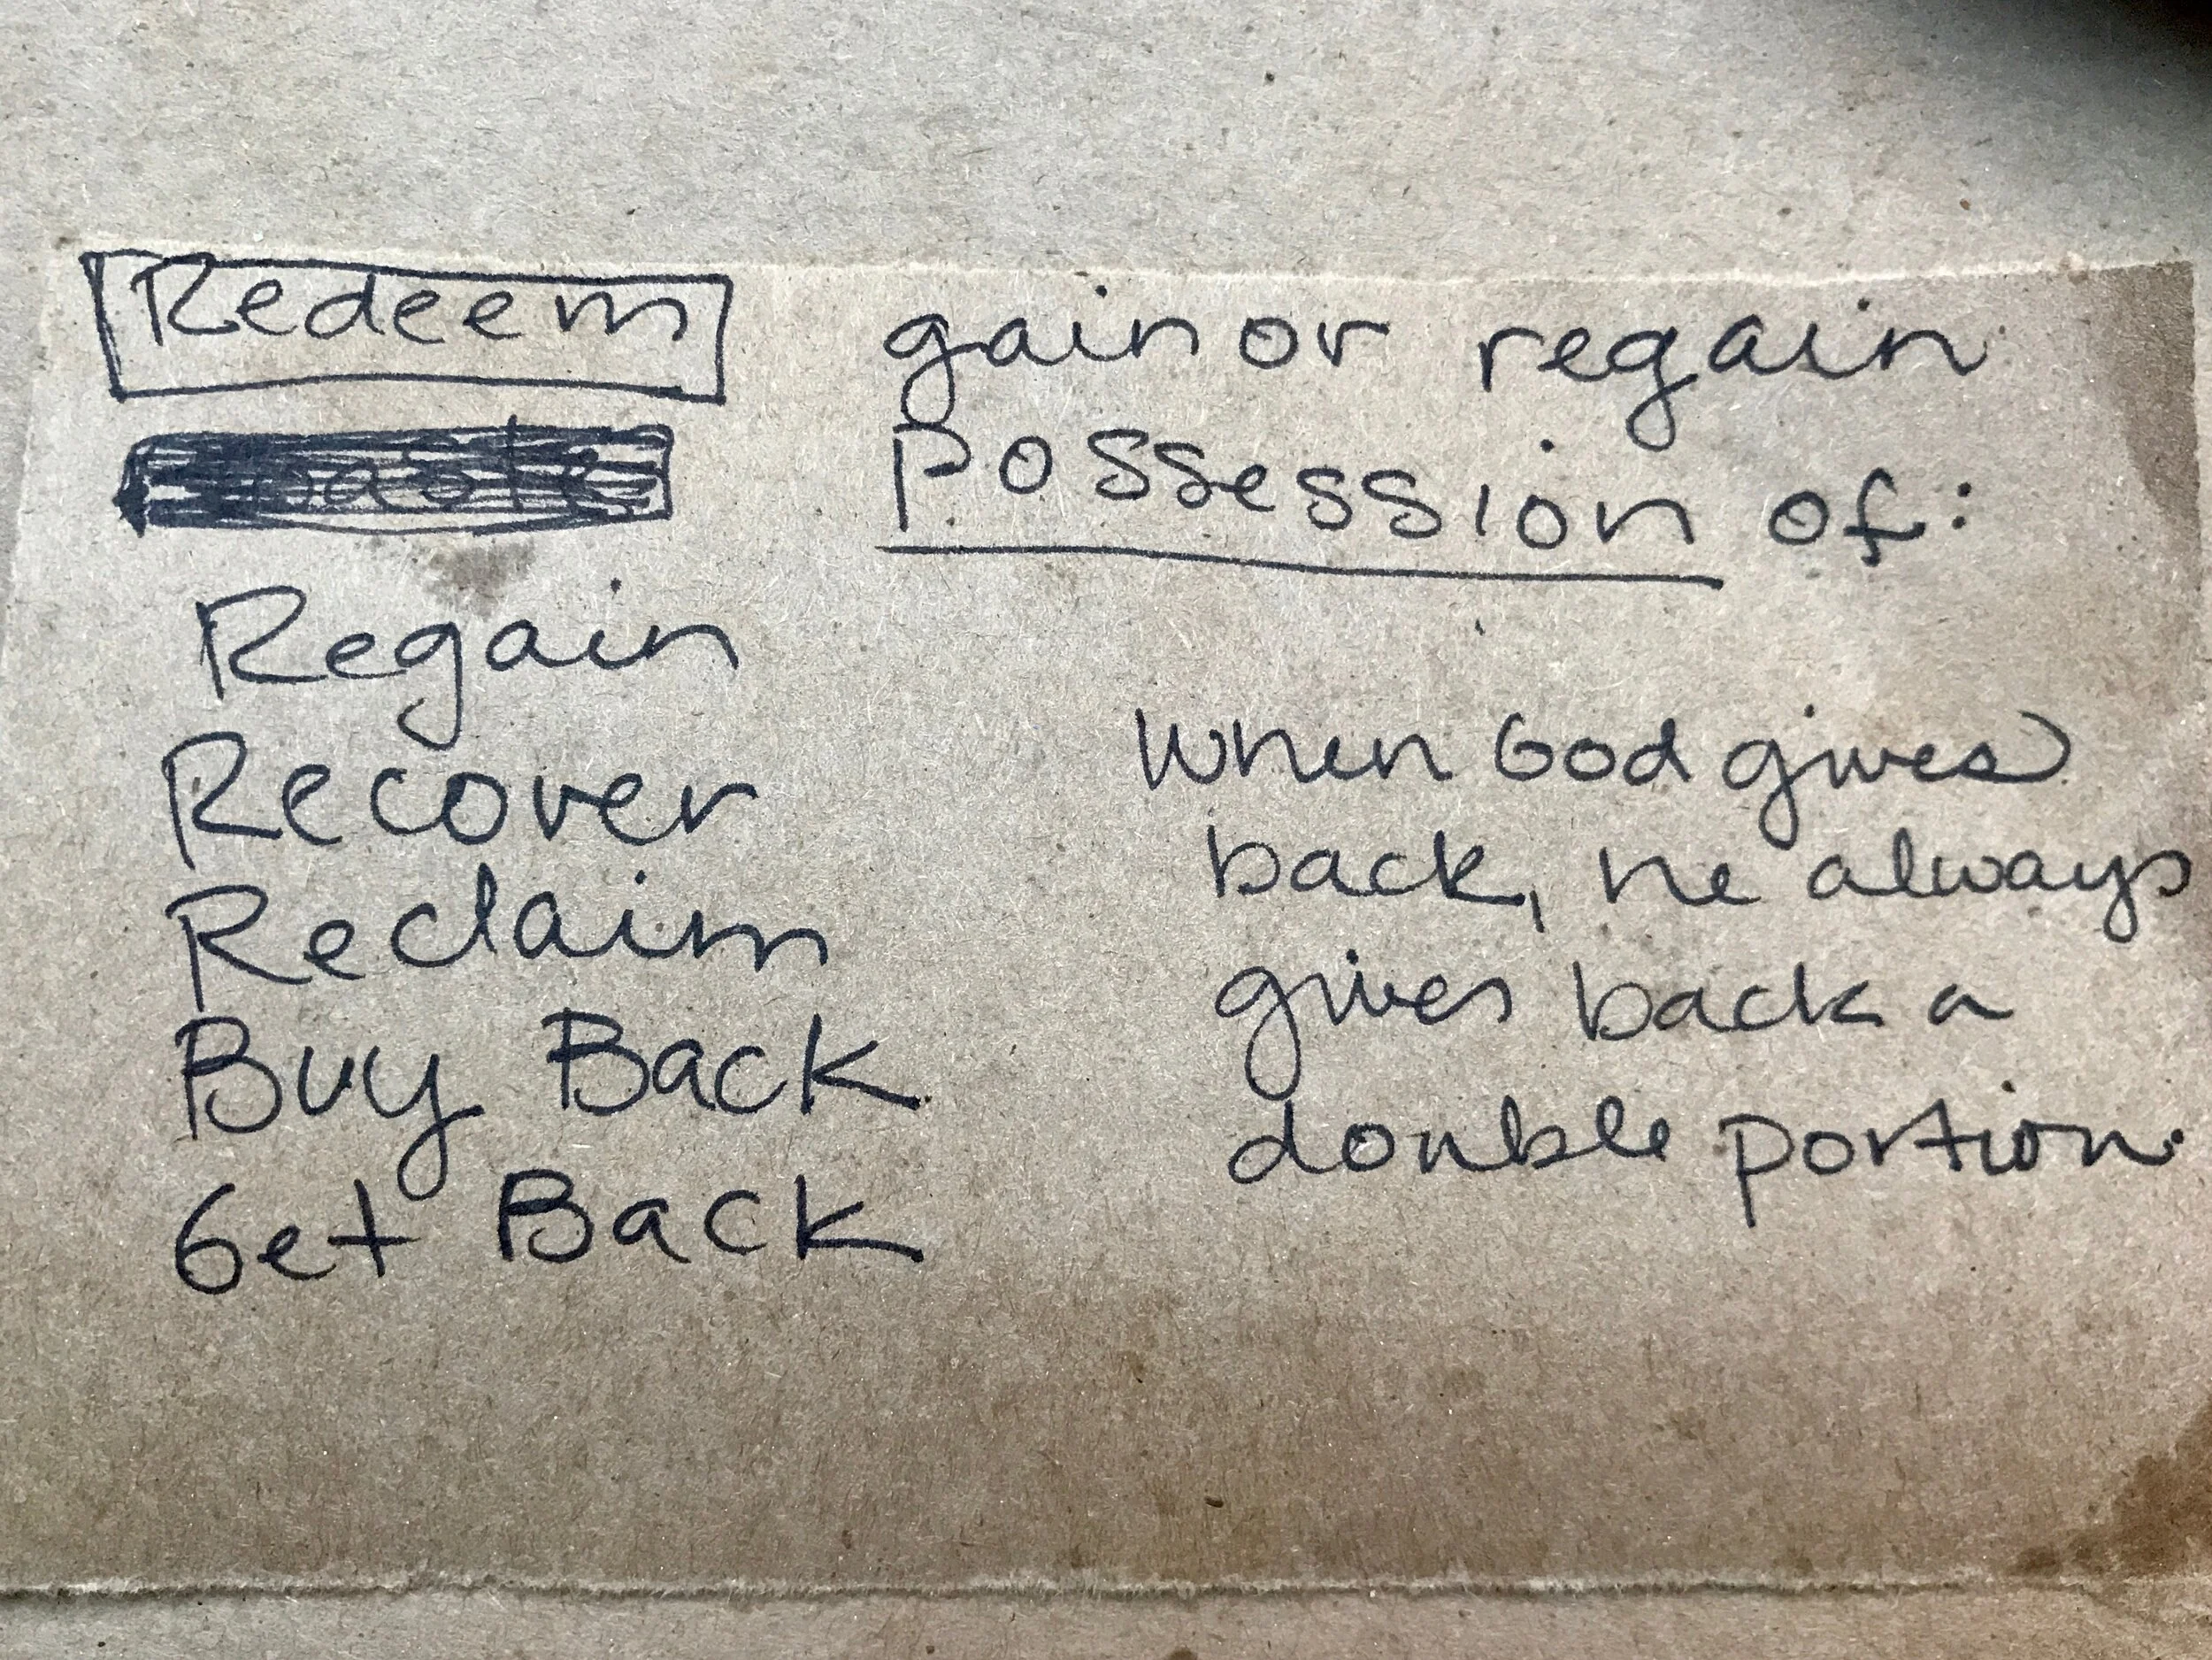 Redeem
gain or regain
Possession of:
Regain
Recover
Reclaim
Buy Back
Get Back
When God gives
back, he always
gives back a
double portion.